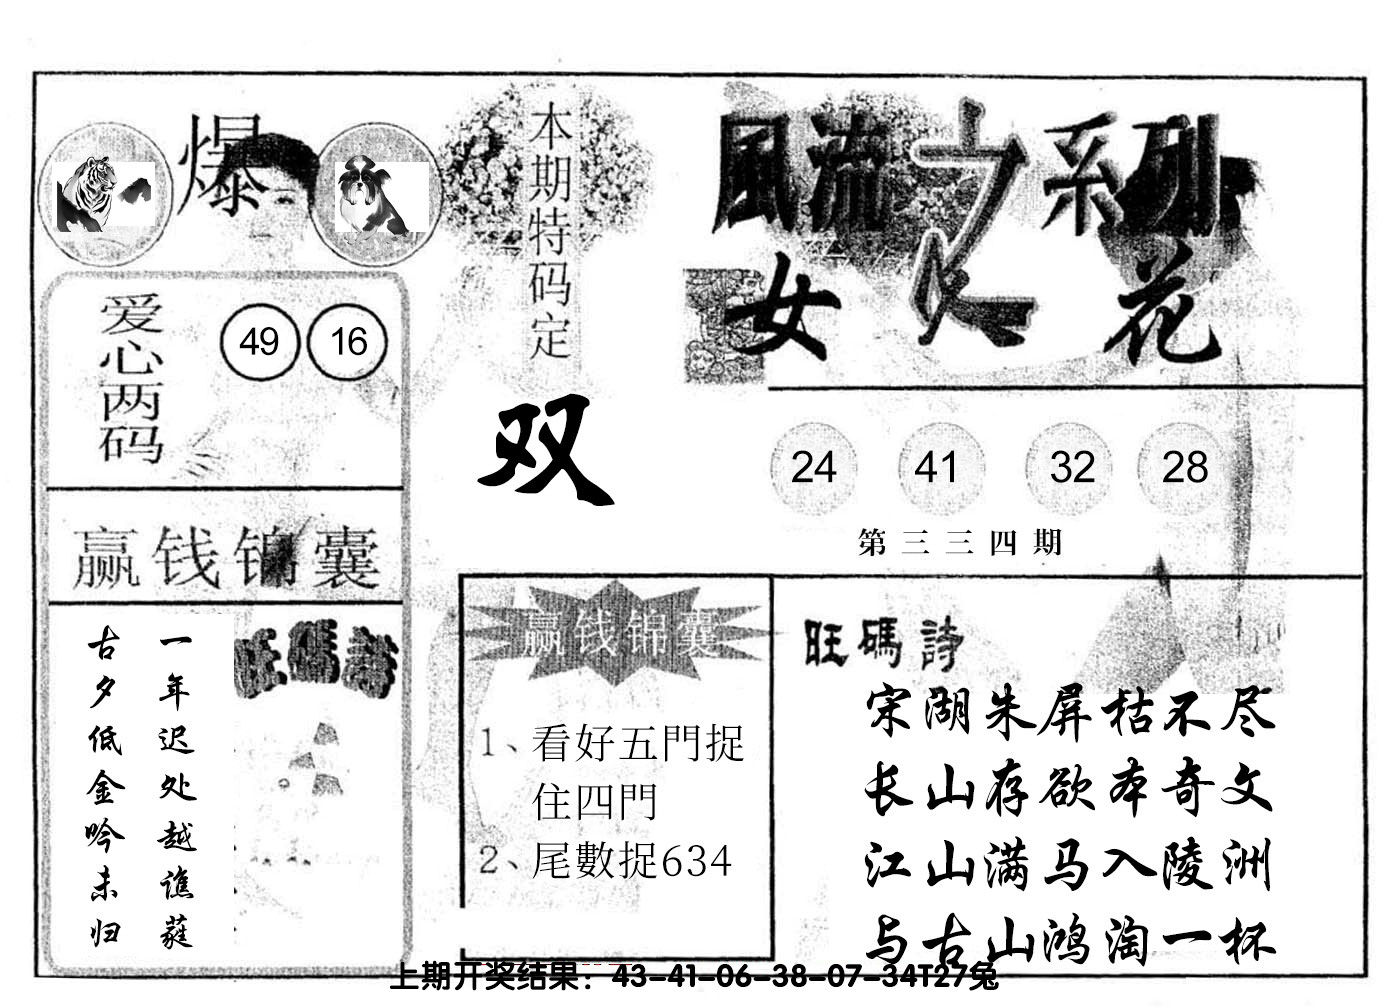 爆
本期特码定
双
風流之系列
女人花
爱心两码
49 16
24 41 32 28
第三三四期
赢钱锦囊
一年迟处越谯蕤
古夕低金吟未归
旺碼詩
赢钱锦囊
1、看好五門捉
住四門
2、尾數捉634
旺碼詩
宋湖朱屏枯不尽
长山存欲本奇文
江山满马入陵洲
与古山鸿淘一杯
上期开奖结果：43-41-06-38-07-34T27兔